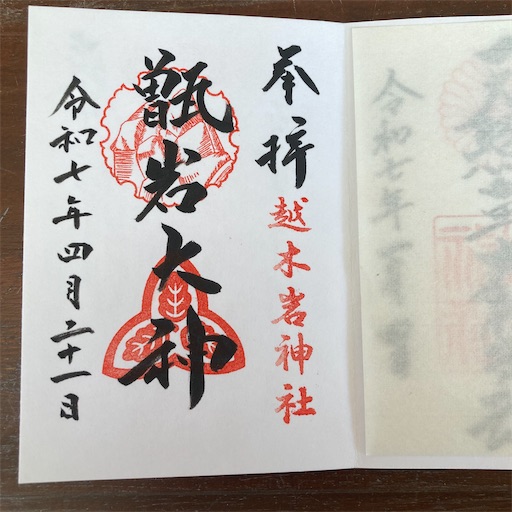 奉拝 越木岩神社
甑岩大神
令和七年四月二十一日